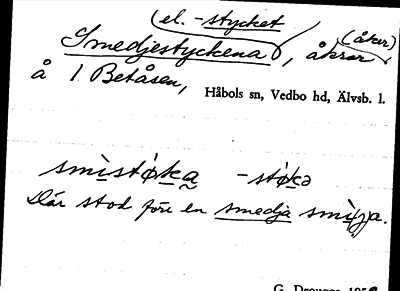 (el. -stycket
Smedjestyckena, åkrar (åker)
å 1 Betåsen,
Håbols sn, Vedbo hd, Älvsb. l.
smìstǿka -stǿkə
Där stod förr en smedja smìja.